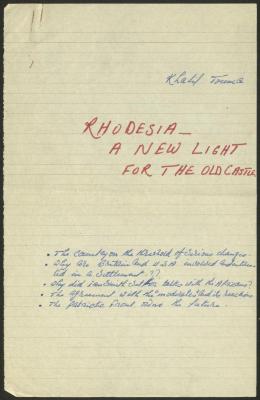 Khalil Touma
RHODESIA —
A NEW LIGHT
FOR THE OLD CASTLE
• The country on the threshold of serious changes.
• Why are Britain and U.S.A involved and interes-
ted in a Settlement ??
• Why did Ian Smith talks with the Africans?
• The Agreement with the "moderates" and its reaction
• The Patriotic Front, the future